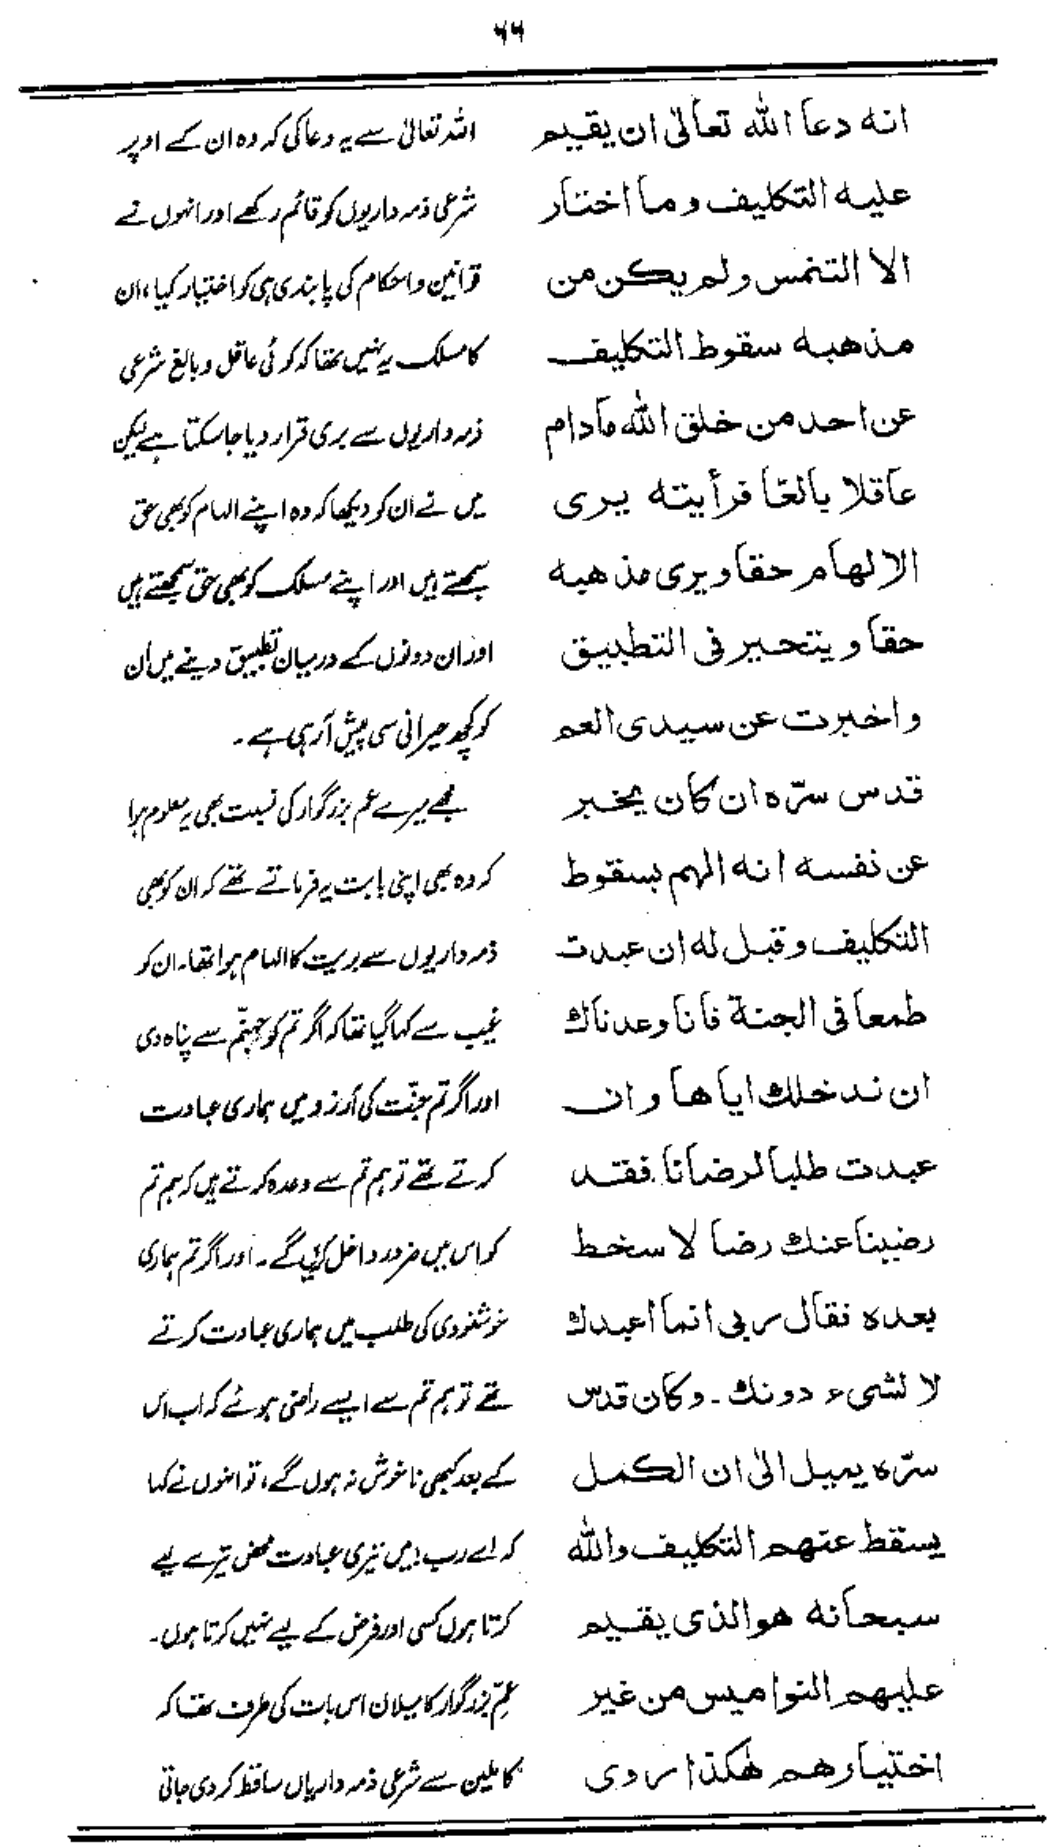 ۶۶
انه دعا الله تعالیٰ ان یقیم
علیه التکلیف وما اختار
الا التنمس ولم یکن من
مذهبه سقوط التکلیف
عن احد من خلق الله مادام
عاقلا بالغا فرأیته یری
الالهام حقا ویری مذهبه
حقا ویتحیر فی التطبیق
واخبرت عن سیدی العم
قدس سرّه ان کان یخبر
عن نفسه انه الهم بسقوط
التکلیف وقیل له ان عبدت
طمعا فی الجنة فانا وعدناك
ان ندخلك ایاها وان
عبدت طلبا لرضانا فقد
رضینا عنك رضا لا سخط
بعده فقال ربی انما اعبدك
لا لشیء دونك ۔ وکان قدس
سرّه یمیل الیٰ ان الکمل
یسقط عنهم التکلیف والله
سبحانه هو الذی یقیم
علیهم النوامیس من غیر
اختیارهم هٰکذا روی
اللہ تعالیٰ سے یہ دعا کی کہ وہ ان کے اوپر
شرعی ذمہ داریوں کو قائم رکھے اور انہوں نے
قوانین و احکام کی پابندی ہی کو اختیار کیا، ان
کا مسلک یہ نہیں تھا کہ کوئی عاقل و بالغ شرعی
ذمہ داریوں سے بری قرار دیا جا سکتا ہے لیکن
میں نے ان کو دیکھا کہ وہ اپنے الہام کو بھی حق
سمجھتے ہیں اور اپنے مسلک کو بھی حق سمجھتے ہیں
اور ان دونوں کے درمیان تطبیق دینے میں ان
کو کچھ حیرانی سی پیش آ رہی ہے ۔
مجھے میرے عم بزرگوار کی نسبت بھی یہ معلوم ہوا
کہ وہ بھی اپنی بابت یہ فرماتے تھے کہ ان کو بھی
ذمہ داریوں سے بریت کا الہام ہوا تھا۔ ان کو
غیب سے کہا گیا تھا کہ اگر تم کو جہنّم سے پناہ دی
اور اگر تم جنّت کی آرزو میں ہماری عبادت
کرتے تھے تو ہم تم سے وعدہ کرتے ہیں کہ ہم تم
کو اس میں ضرور داخل کریں گے ۔ اور اگر تم ہماری
خوشنودی کی طلب میں ہماری عبادت کرتے
تھے تو ہم تم سے ایسے راضی ہوئے کہ اب اس
کے بعد کبھی ناخوش نہ ہوں گے، تو انہوں نے کہا
کہ اے رب! میں تیری عبادت محض تیرے لیے
کرتا ہوں کسی اور غرض کے لیے نہیں کرتا ہوں۔
عمِّ بزرگوار کا میلان اس بات کی طرف تھا کہ
کاملین سے شرعی ذمہ داریاں ساقط کر دی جاتی